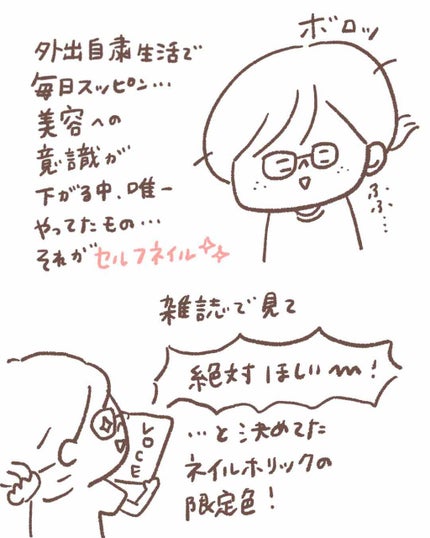 外出自粛生活で
毎日スッピン…
美容への
意識が
下がる中、唯一
やってたもの…
それがセルフネイル
ボロッ
ふふ…
雑誌で見て
絶対ほしい〜!
…と決めてた
ネイルホリックの
限定色!
VOCE